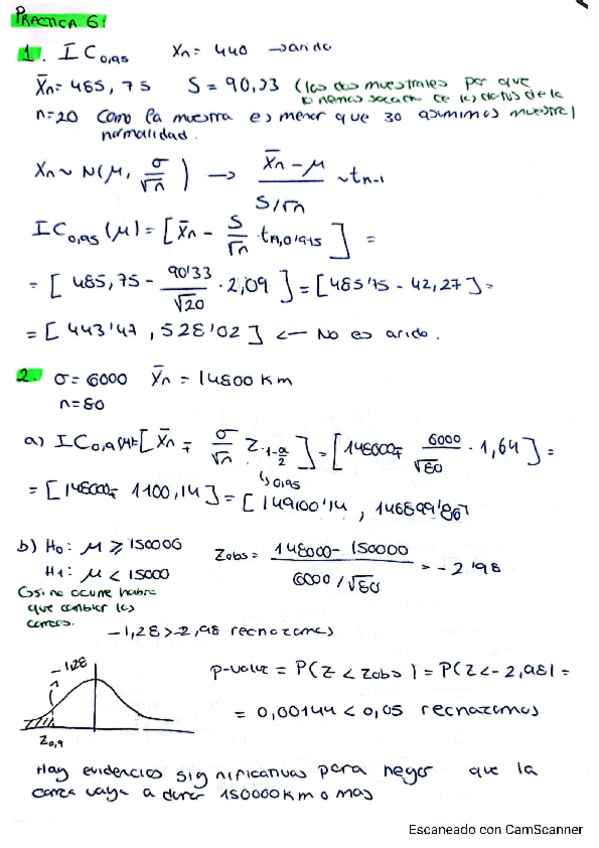 PRACTICA 6:
1. IC0,95 Xn = 440 → arido
X̄n = 485,75 S = 90,33 (las dos muestrales por que
lo hemos sacado de los datos de la
n=20 Como la muestra es menor que 30 asumimos muestra)
normalidad.
Xn ~ N(μ, σ/√n) → X̄n - μ / S/√n ~ tn-1
IC0,95 (μ) = [X̄n - S/√n · t19,0'975] =
= [485,75 - 90'33/√20 · 2,09] = [485'75 - 42,27] =
= [443'47, 528'02] ← No es arido.
2. σ = 6000 X̄n = 14800 Km
n = 80
a) IC0,9(μ) = [X̄n ∓ σ/√n Z1-α/2] = [148000 ∓ 6000/√80 · 1,64] =
↳ 0,95
= [148000 ∓ 1100,14] = [149100'14, 146899'86]
b) H0: μ ⩾ 150000 Zobs = 148000 - 150000 / 6000/√80 = -2'98
H1: μ < 15000
Cosi no ocurre habra
que cambiar las
correas.
-1,28 > -2,98 rechazamos
-1,28
p-value = P(Z < Zobs) = P(Z < -2,98) =
= 0,00144 < 0,05 rechazamos
Z0,9
Hay evidencias significativas para negar que la
correa vaya a durar 150000 Km o mas
Escaneado con CamScanner